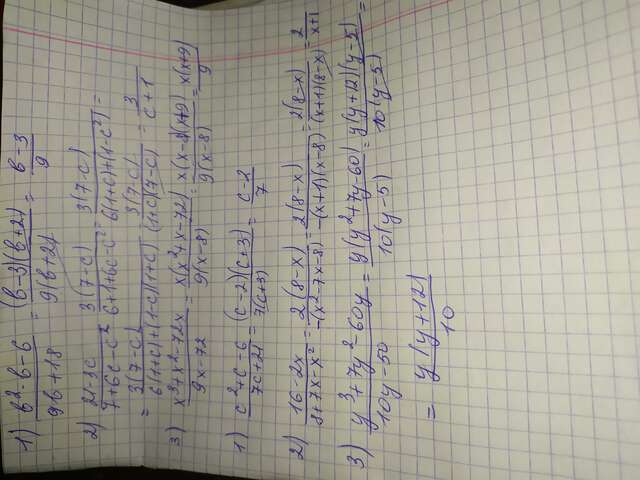 1) (в²-в-6)/(9в+18) = ((в-3)(в+2))/(9(в+2)) = (в-3)/9
2) (21-3c)/(7+6c-c²) = (3(7-c))/(6+1+6c-c²) = (3(7-c))/(6(1+c)+(1-c²)) =
= (3(7-c))/(6(1+c)+(1-c)(1+c)) = (3(7-c))/((1+c)(7-c)) = 3/(c+1)
3) (x³+x²-72x)/(9x-72) = (x(x²+x-72))/(9(x-8)) = (x(x-8)(x+9))/(9(x-8)) = (x(x+9))/9
1) (c²+c-6)/(7c+21) = ((c-2)(c+3))/(7(c+3)) = (c-2)/7
2) (16-2x)/(8+7x-x²) = (2(8-x))/(-(x²-7x-8)) = (2(8-x))/(-(x+1)(x-8)) = (2(8-x))/((x+1)(8-x)) = 2/(x+1)
3) (y³+7y²-60y)/(10y-50) = (y(y²+7y-60))/(10(y-5)) = (y(y+12)(y-5))/(10(y-5)) =
= (y(y+12))/10